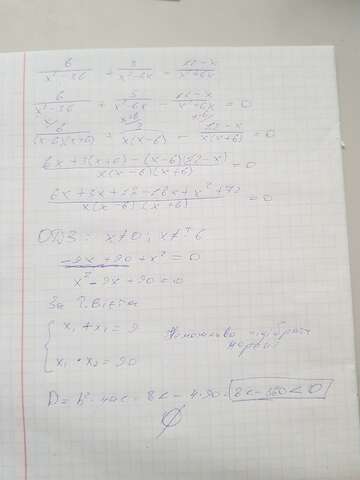 6/(x²-36) + 3/(x²-6x) - (12-x)/(x²+6x)
6/(x²-36) + 3/(x²-6x) - (12-x)/(x²+6x) = 0
6/((x-6)(x+6)) + 3/(x(x-6)) - (12-x)/(x(x+6)) = 0
(6x+3(x+6)-(x-6)(12-x))/(x(x-6)(x+6)) = 0
(6x+3x+18-18x+x²+72)/(x(x-6)(x+6)) = 0
ОДЗ: x≠0; x≠±6
-9x+90+x²=0
x²-9x+90=0
За т. Вієта
x₁+x₂=9
Неможливо підібрати
x₁·x₂=90
D=b²-4ac=81-4·90=81-360<0
∅